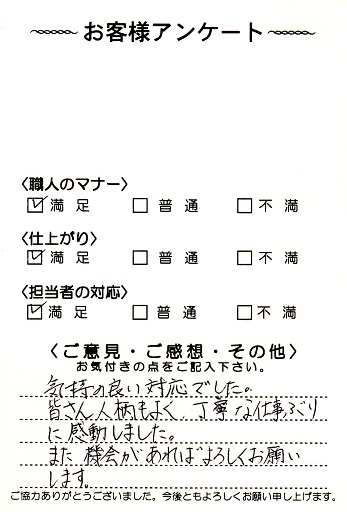 お客様アンケート
〈職人のマナー〉
☑満足 □普通 □不満
〈仕上がり〉
☑満足 □普通 □不満
〈担当者の対応〉
☑満足 □普通 □不満
〈ご意見・ご感想・その他〉
お気付きの点をご記入下さい。
気持の良い対応でした。
皆さん人柄もよく、丁寧な仕事ぶり
に感動しました。
また機会があればよろしくお願い
します。
ご協力ありがとうございました。今後ともよろしくお願い申し上げます。